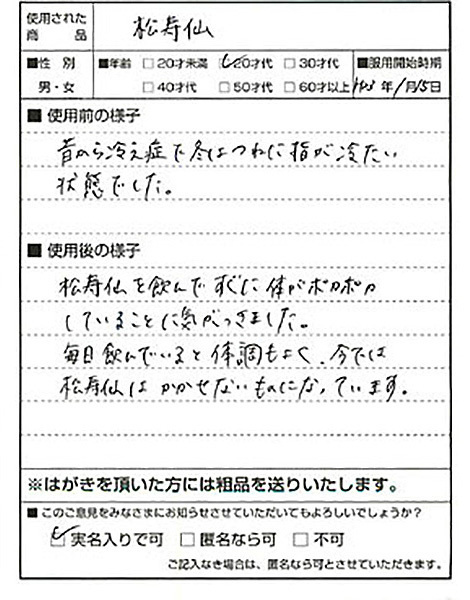 使用された
商品 松寿仙
■性別 ■年齢 □20才未満 ☑20才代 □30才代 ■服用開始時期
男・女 □40才代 □50才代 □60才以上 年1月15日
■使用前の様子
昔から冷え症で冬はつねに指が冷たい
状態でした。
■使用後の様子
松寿仙を飲んですぐに体がポカポカ
していることに気がつきました。
毎日飲んでいると体調もよく、今では
松寿仙はかかせないものになっています。
※はがきを頂いた方には粗品を送りいたします。
■このご意見をみなさまにお知らせさせていただいてもよろしいでしょうか?
☑実名入りで可 □匿名なら可 □不可
ご記入なき場合は、匿名なら可とさせていただきます。